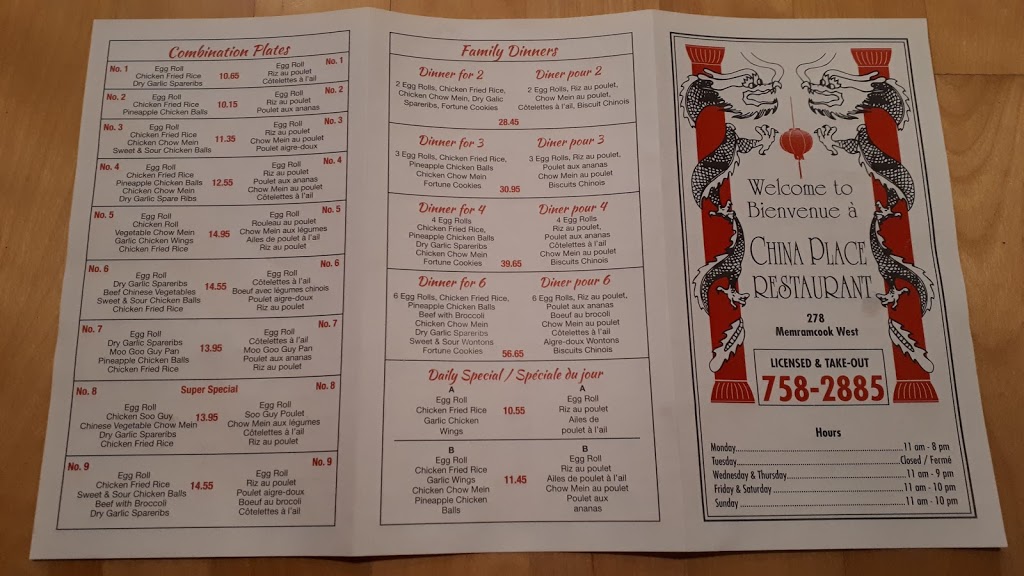 Combination Plates
No. 1
Egg Roll
Chicken Fried Rice
Dry Garlic Spareribs
10.65
Egg Roll
Riz au poulet
Côtelettes à l'ail
No. 1
No. 2
Egg Roll
Chicken Fried Rice
Pineapple Chicken Balls
10.15
Egg Roll
Riz au poulet
Poulet aux ananas
No. 2
No. 3
Egg Roll
Chicken Fried Rice
Chicken Chow Mein
Sweet & Sour Chicken Balls
11.35
Egg Roll
Riz au poulet
Chow Mein au poulet
Poulet aigre-doux
No. 3
No. 4
Egg Roll
Chicken Fried Rice
Pineapple Chicken Balls
Chicken Chow Mein
Dry Garlic Spare Ribs
12.55
Egg Roll
Riz au poulet
Poulet aux ananas
Chow Mein au poulet
Côtelettes à l'ail
No. 4
No. 5
Egg Roll
Chicken Roll
Vegetable Chow Mein
Garlic Chicken Wings
Chicken Fried Rice
14.95
Egg Roll
Rouleau au poulet
Chow Mein aux légumes
Ailes de poulet à l'ail
Riz au poulet
No. 5
No. 6
Egg Roll
Dry Garlic Spareribs
Beef Chinese Vegetables
Sweet & Sour Chicken Balls
Chicken Fried Rice
14.55
Egg Roll
Côtelettes à l'ail
Boeuf avec légumes chinois
Poulet aigre-doux
Riz au poulet
No. 6
No. 7
Egg Roll
Dry Garlic Spareribs
Moo Goo Guy Pan
Pineapple Chicken Balls
Chicken Fried Rice
13.95
Egg Roll
Côtelettes à l'ail
Moo Goo Guy Pan
Poulet aux ananas
Riz au poulet
No. 7
No. 8
Super Special
No. 8
Egg Roll
Chicken Soo Guy
Chinese Vegetable Chow Mein
Dry Garlic Spareribs
Chicken Fried Rice
13.95
Egg Roll
Soo Guy Poulet
Chow Mein aux légumes
Côtelettes à l'ail
Riz au poulet
No. 9
Egg Roll
Chicken Fried Rice
Sweet & Sour Chicken Balls
Beef with Broccoli
Dry Garlic Spareribs
14.55
Egg Roll
Riz au poulet
Poulet aigre-doux
Boeuf au brocoli
Côtelettes à l'ail
No. 9
Family Dinners
Dinner for 2
2 Egg Rolls, Chicken Fried Rice,
Chicken Chow Mein, Dry Galic
Spareribs, Fortune Cookies
Dîner pour 2
2 Egg Rolls, Riz au poulet,
Chow Mein au poulet,
Côtelettes à l'ail, Biscuit Chinois
28.45
Dinner for 3
3 Egg Rolls, Chicken Fried Rice,
Pineapple Chicken Balls
Chicken Chow Mein
Fortune Cookies
30.95
Dîner pour 3
3 Egg Rolls, Riz au poulet,
Poulet aux ananas
Chow Mein au poulet
Biscuits Chinois
Dinner for 4
4 Egg Rolls
Chicken Fried Rice,
Pineapple Chicken Balls
Dry Garlic Spareribs
Chicken Chow Mein
Fortune Cookies
39.65
Dîner pour 4
4 Egg Rolls
Riz au poulet,
Poulet aux ananas
Côtelettes à l'ail
Chow Mein au poulet
Biscuits Chinois
Dinner for 6
6 Egg Rolls, Chicken Fried Rice,
Pineapple Chicken Balls
Beef with Broccoli
Chicken Chow Mein
Dry Garlic Spareribs
Sweet & Sour Wontons
Fortune Cookies
56.65
Dîner pour 6
6 Egg Rolls, Riz au poulet,
Poulet aux ananas
Boeuf au brocoli
Chow Mein au poulet
Côtelettes à l'ail
Aigre-doux Wontons
Biscuits Chinois
Daily Special / Spéciale du jour
A
Egg Roll
Chicken Fried Rice
Garlic Chicken
Wings
10.55
A
Egg Roll
Riz au poulet
Ailes de
poulet à l'ail
B
Egg Roll
Chicken Fried Rice
Garlic Wings
Chicken Chow Mein
Pineapple Chicken
Balls
11.45
B
Egg Roll
Riz au poulet
Ailes de poulet à l'ail
Chow Mein au poulet
Poulet aux
ananas
Welcome to
Bienvenue à
China Place
Restaurant
278
Memramcook West
LICENSED & TAKE-OUT
758-2885
Hours
Monday...11 am - 8 pm
Tuesday...Closed / Fermé
Wednesday & Thursday...11 am - 9 pm
Friday & Saturday...11 am - 10 pm
Sunday...11 am - 10 pm